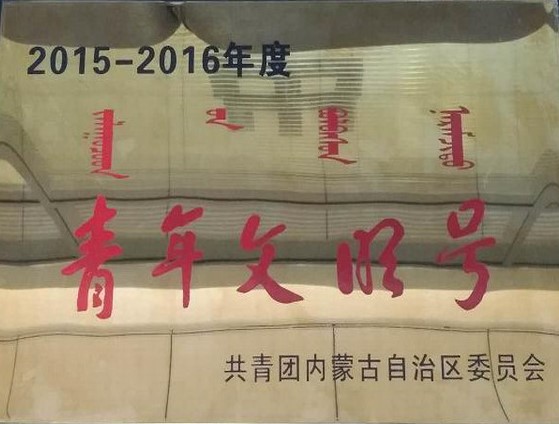 2015-2016年度
青年文明号
共青团内蒙古自治区委员会